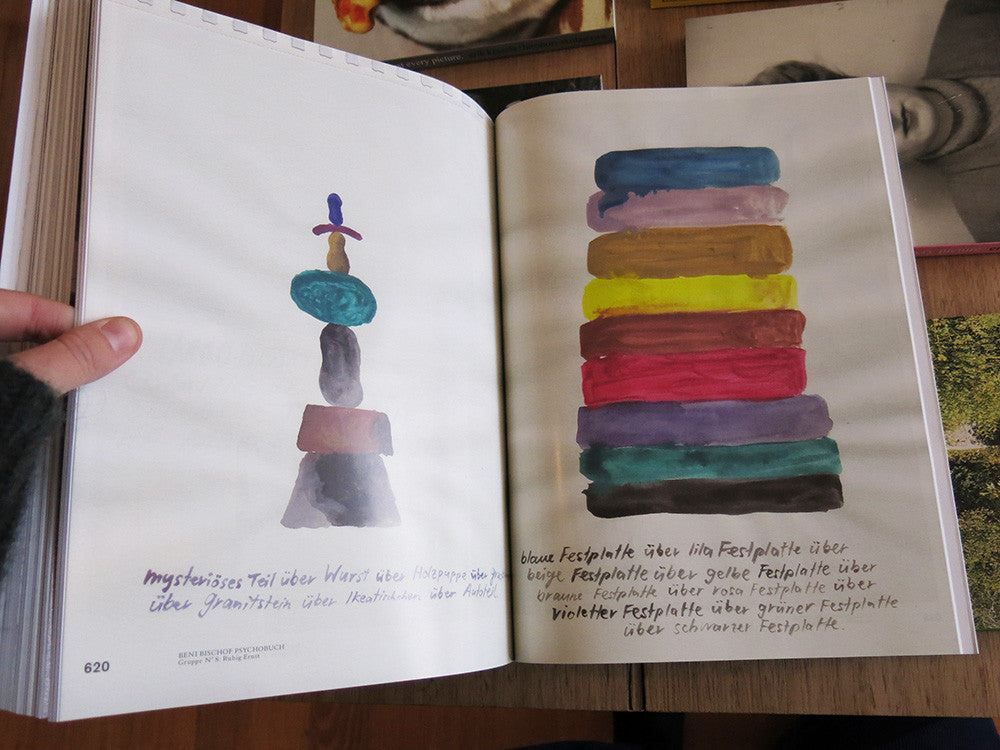 every picture.
mysteriöses Teil über Wurst über Holzpuppe über
über Granitstein über Ikeatischchen über Autoteil
620
BENI BISCHOF PSYCHOBUCH
Gruppe N° 8: Ruhig Ernst
blaue Festplatte über lila Festplatte über
beige Festplatte über gelbe Festplatte über
braune Festplatte über rosa Festplatte über
violetter Festplatte über grüner Festplatte
über schwarzer Festplatte.